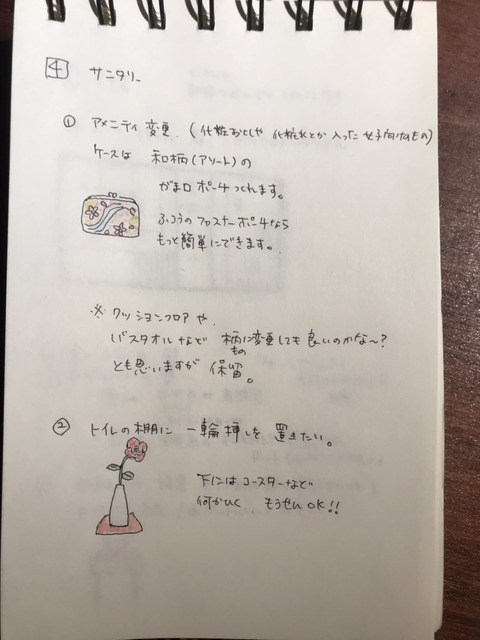 4 サニタリー
① アメニティ変更.(化粧おとしや 化粧水とか 入った 女子向けのもの)
ケースは 和柄(アソート)の
がま口 ポーチ つくれます。
ふつうの ファスナーポーチなら
もっと簡単にできます。
※ クッションフロアや.
バスタオルなど 柄に変更しても 良いのかな〜?
もの
とも思いますが 保留。
② トイレの棚に 一輪挿しを 置きたい。
下には コースターなど
何かひく もうせん OK!!